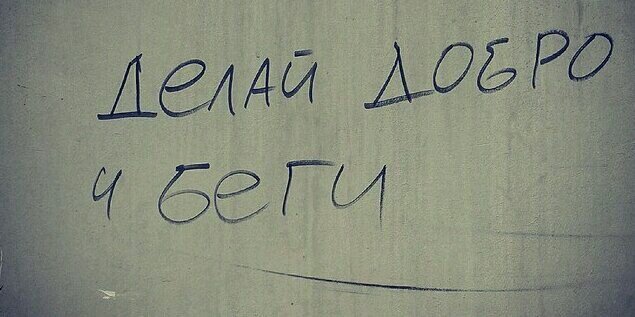 ДЕЛАЙ ДОБРО
И БЕГИ